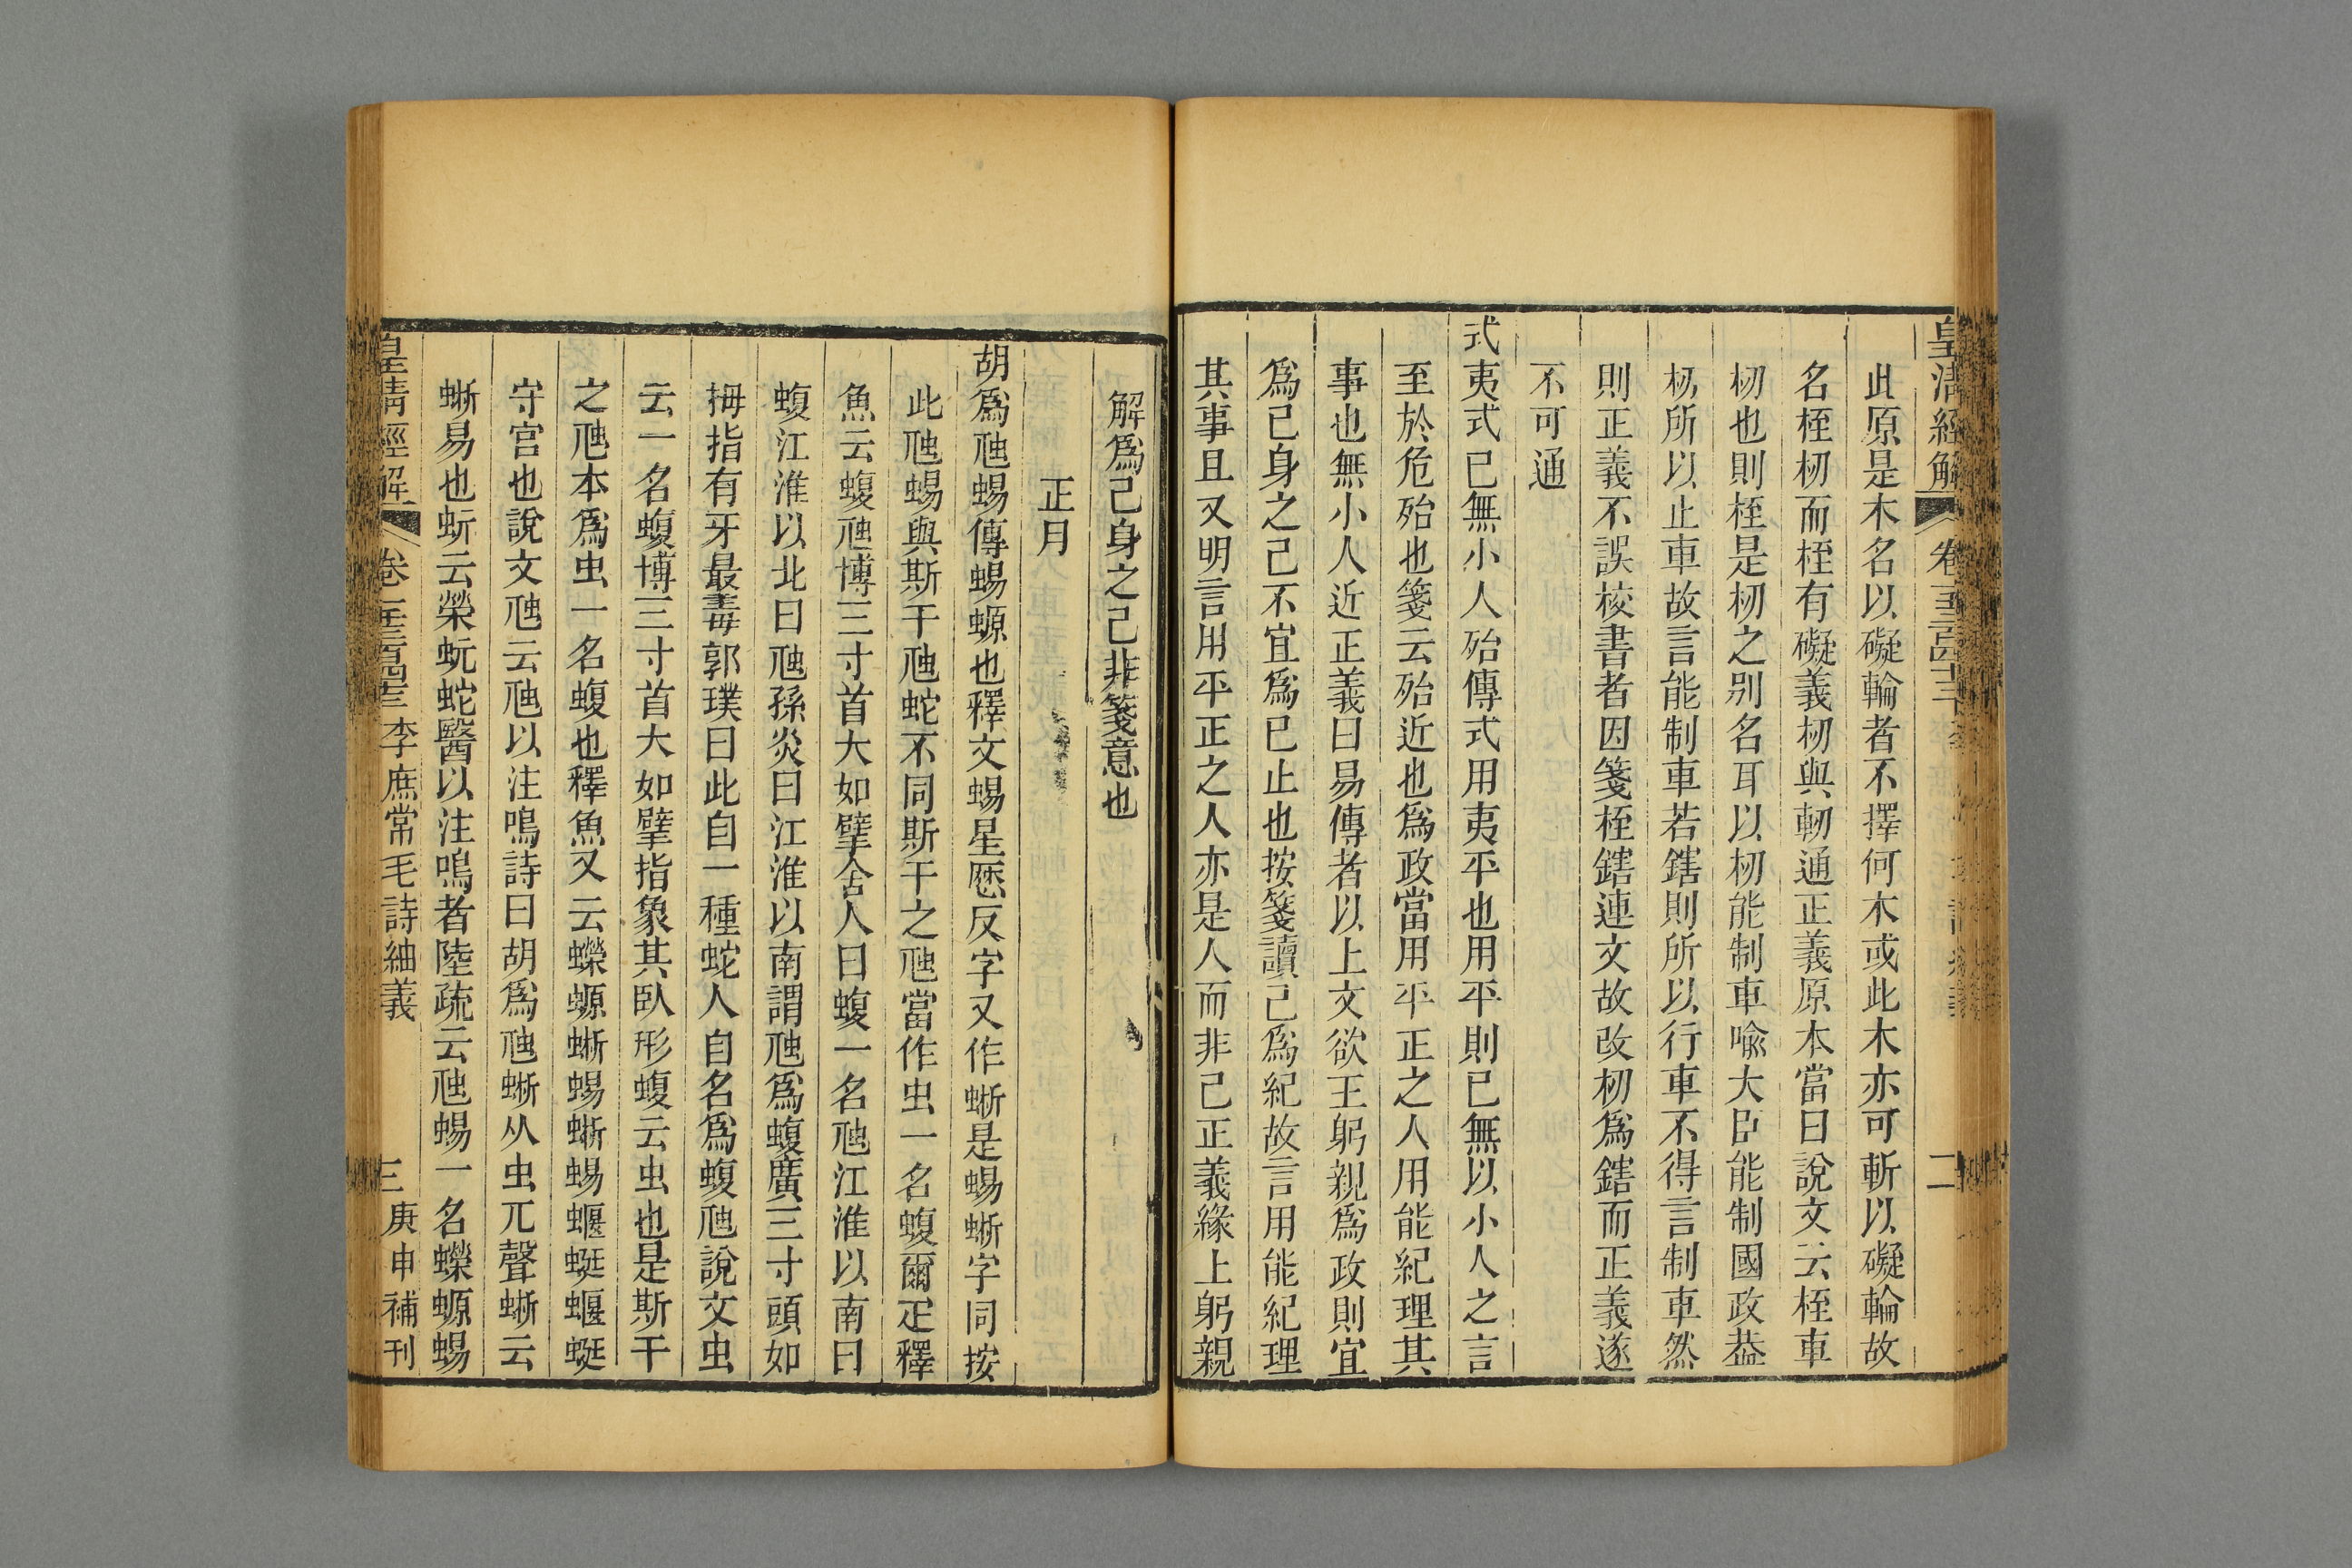 皇清經解
卷一千三百四十三
二
此原是木名以礙輪者不擇何木或此木亦可斬以礙輪故
名桎杒而桎有礙義杒與軔通正義原本當曰說文云桎車
杒也則桎是杒之别名耳以杒能制車喩大臣能制國政葢
杒所以止車故言能制車若鎋則所以行車不得言制車然
則正義不誤校書者因箋桎鎋連文故改杒爲鎋而正義遂
不可通
式夷式已無小人殆傳式用夷平也用平則已無以小人之言
至於危殆也箋云殆近也爲政當用平正之人用能紀理其
事也無小人近正義曰易傳者以上文欲王躬親爲政則宜
爲己身之己不宜爲已止也按箋讀己爲紀故言用能紀理
其事且又明言用平正之人亦是人而非己正義緣上躬親
解爲己身之己非箋意也
正月
胡爲虺蜴傳蜴螈也釋文蜴星厯反字又作蜥是蜴蜥字同按
此虺蜴與斯干虺蛇不同斯干之虺當作虫一名蝮爾疋釋
魚云蝮虺博三寸首大如擘舍人曰蝮一名虺江淮以南曰
蝮江淮以北曰虺孫炎曰江淮以南謂虺爲蝮廣三寸頭如
拇指有牙最毒郭璞曰此自一種蛇人自名爲蝮虺說文虫
云一名蝮博三寸首大如擘指象其臥形蝮云虫也是斯干
之虺本爲虫一名蝮也釋魚又云蠑螈蜥蜴蜥蜴蝘蜓蝘蜓
守宫也說文虺云虺以注鳴詩曰胡爲虺蜥从虫兀聲蜥云
蜥易也蚖云榮蚖蛇醫以注鳴者陸疏云虺蜴一名蠑螈蜴
皇清經解
卷一千三百四十三
李庶常毛詩紬義
三
庚申補刊